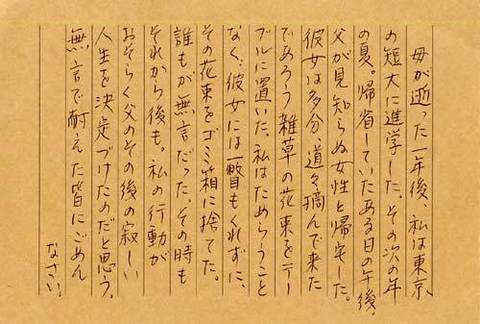 母が逝った一年後、私は東京
の短大に進学した。その次の年
の夏。帰省していたある日の午後、
父が見知らぬ女性と帰宅した。
彼女は多分、道々摘んで来た
であろう雑草の花束をテー
ブルに置いた。私はためらうこと
なく、彼女には一瞥もくれずに、
その花束をゴミ箱に捨てた。
誰もが無言だった。その時も
それから後も。私の行動が
おそらく父のその後の寂しい
人生を決定づけたのだと思う。
無言で耐えた皆にごめん
なさい。